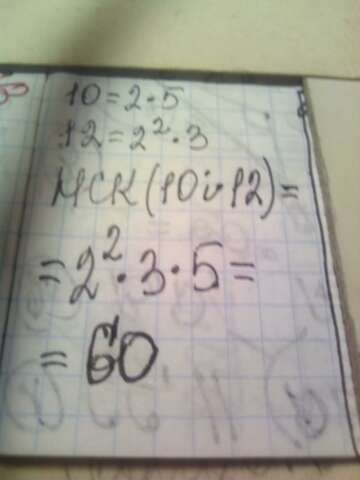 10=2·5
12=2²·3
НСК(10 і 12)=
=2²·3·5=
=60